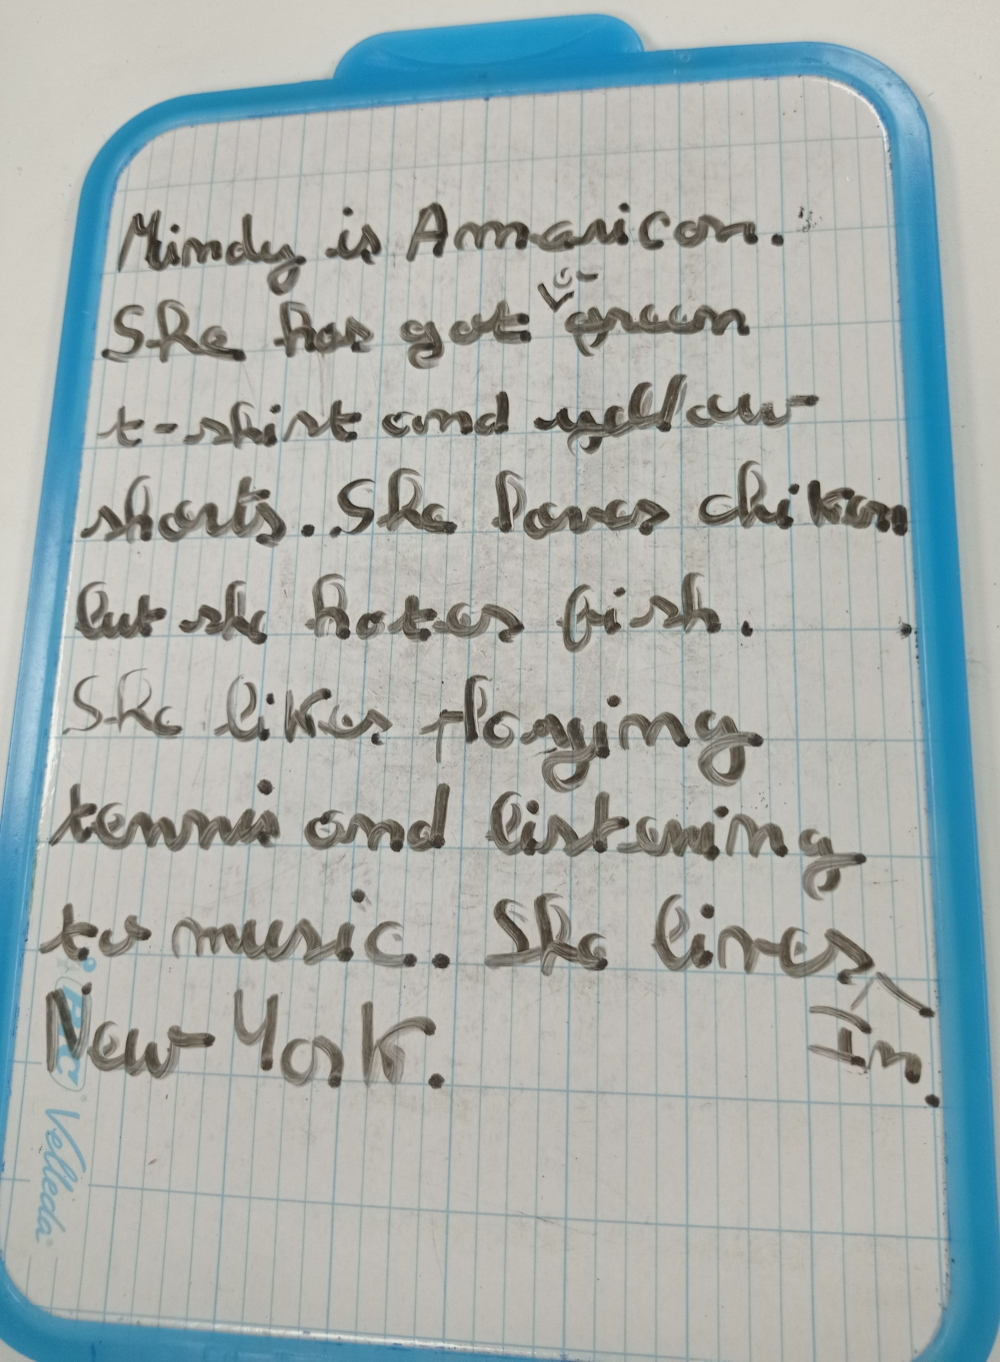 Mindy is American.
She has got a green
t-shirt and yellow
shorts. She loves chiken
but she hates fish.
She likes playing
tennis and listening
to music. She lives in
New York.
Velleda